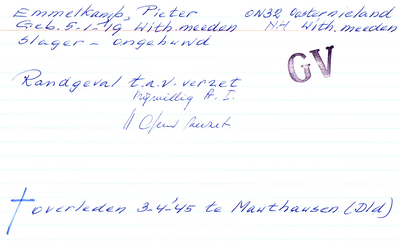 Emmelkamp, Pieter ON32 Oosternieland
Geb. 5-1-'19 With.meeden NH With.meeden
Slager - ongehuwd
GV
Randgeval t.a.v. verzet
vrijwillig A.I.
verzet
† overleden 3-4-'45 te Mauthausen (Dld)